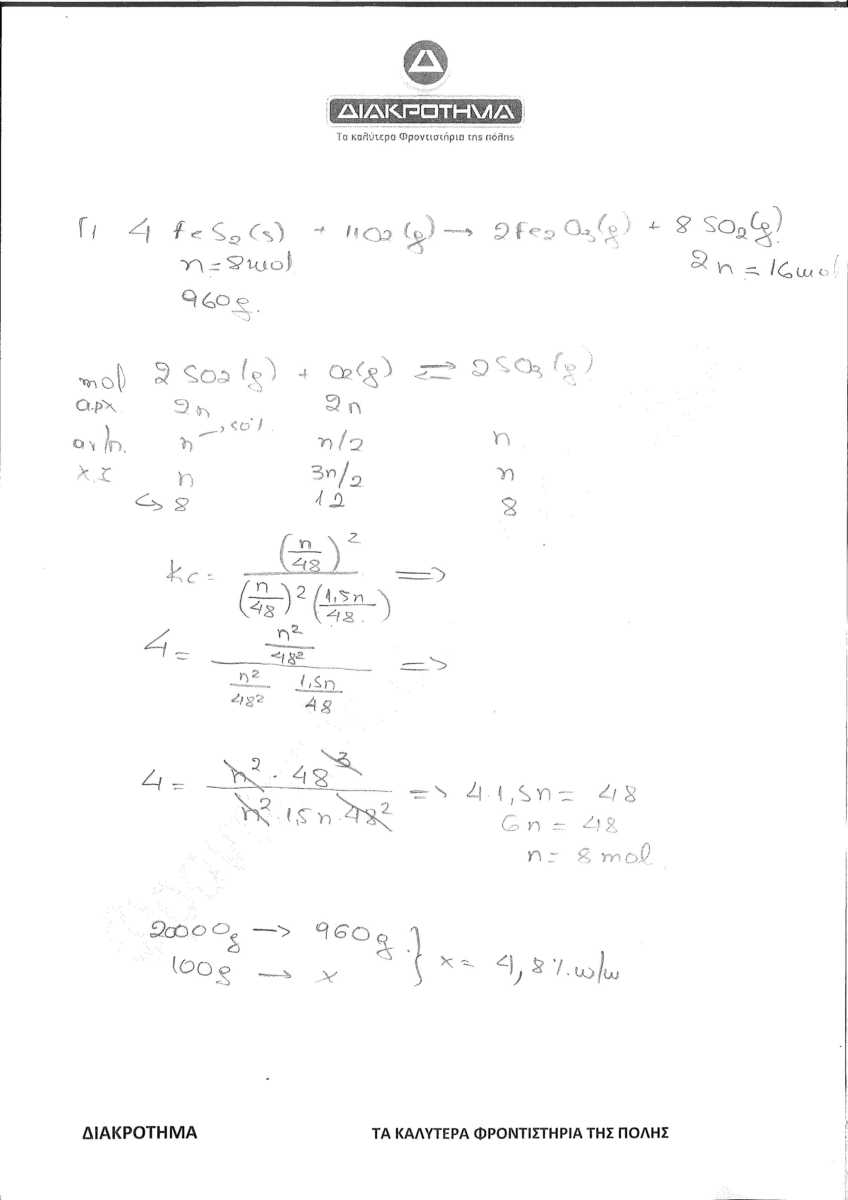 Δ
ΔΙΑΚΡΟΤΗΜΑ
Τα καλύτερα Φροντιστήρια της πόλης
Γ, 4 FeS2(s) + 11O2(g) → 2Fe2O3(g) + 8 SO2(g)
n=8mol 2n = 16mol
960g.
mol 2SO2(g) + O2(g) ⇌ 2SO3(g)
αρχ 2n 2n
αν/π. n →50% n/2 n
Χ.Ι n 3n/2 n
↳ 8 12 8
Kc = (n/48)^2 / (n/48)^2 (1,5n/48) =>
4 = n^2/48^2 / n^2/48^2 1,5n/48 =>
4 = n^2 · 48^3 / n^2 · 1,5n · 48^2 => 4·1,5n = 48
6n = 48
n = 8mol
20000g → 960g } x = 4,8% w/w
100g → x
ΔΙΑΚΡΟΤΗΜΑ ΤΑ ΚΑΛΥΤΕΡΑ ΦΡΟΝΤΙΣΤΗΡΙΑ ΤΗΣ ΠΟΛΗΣ